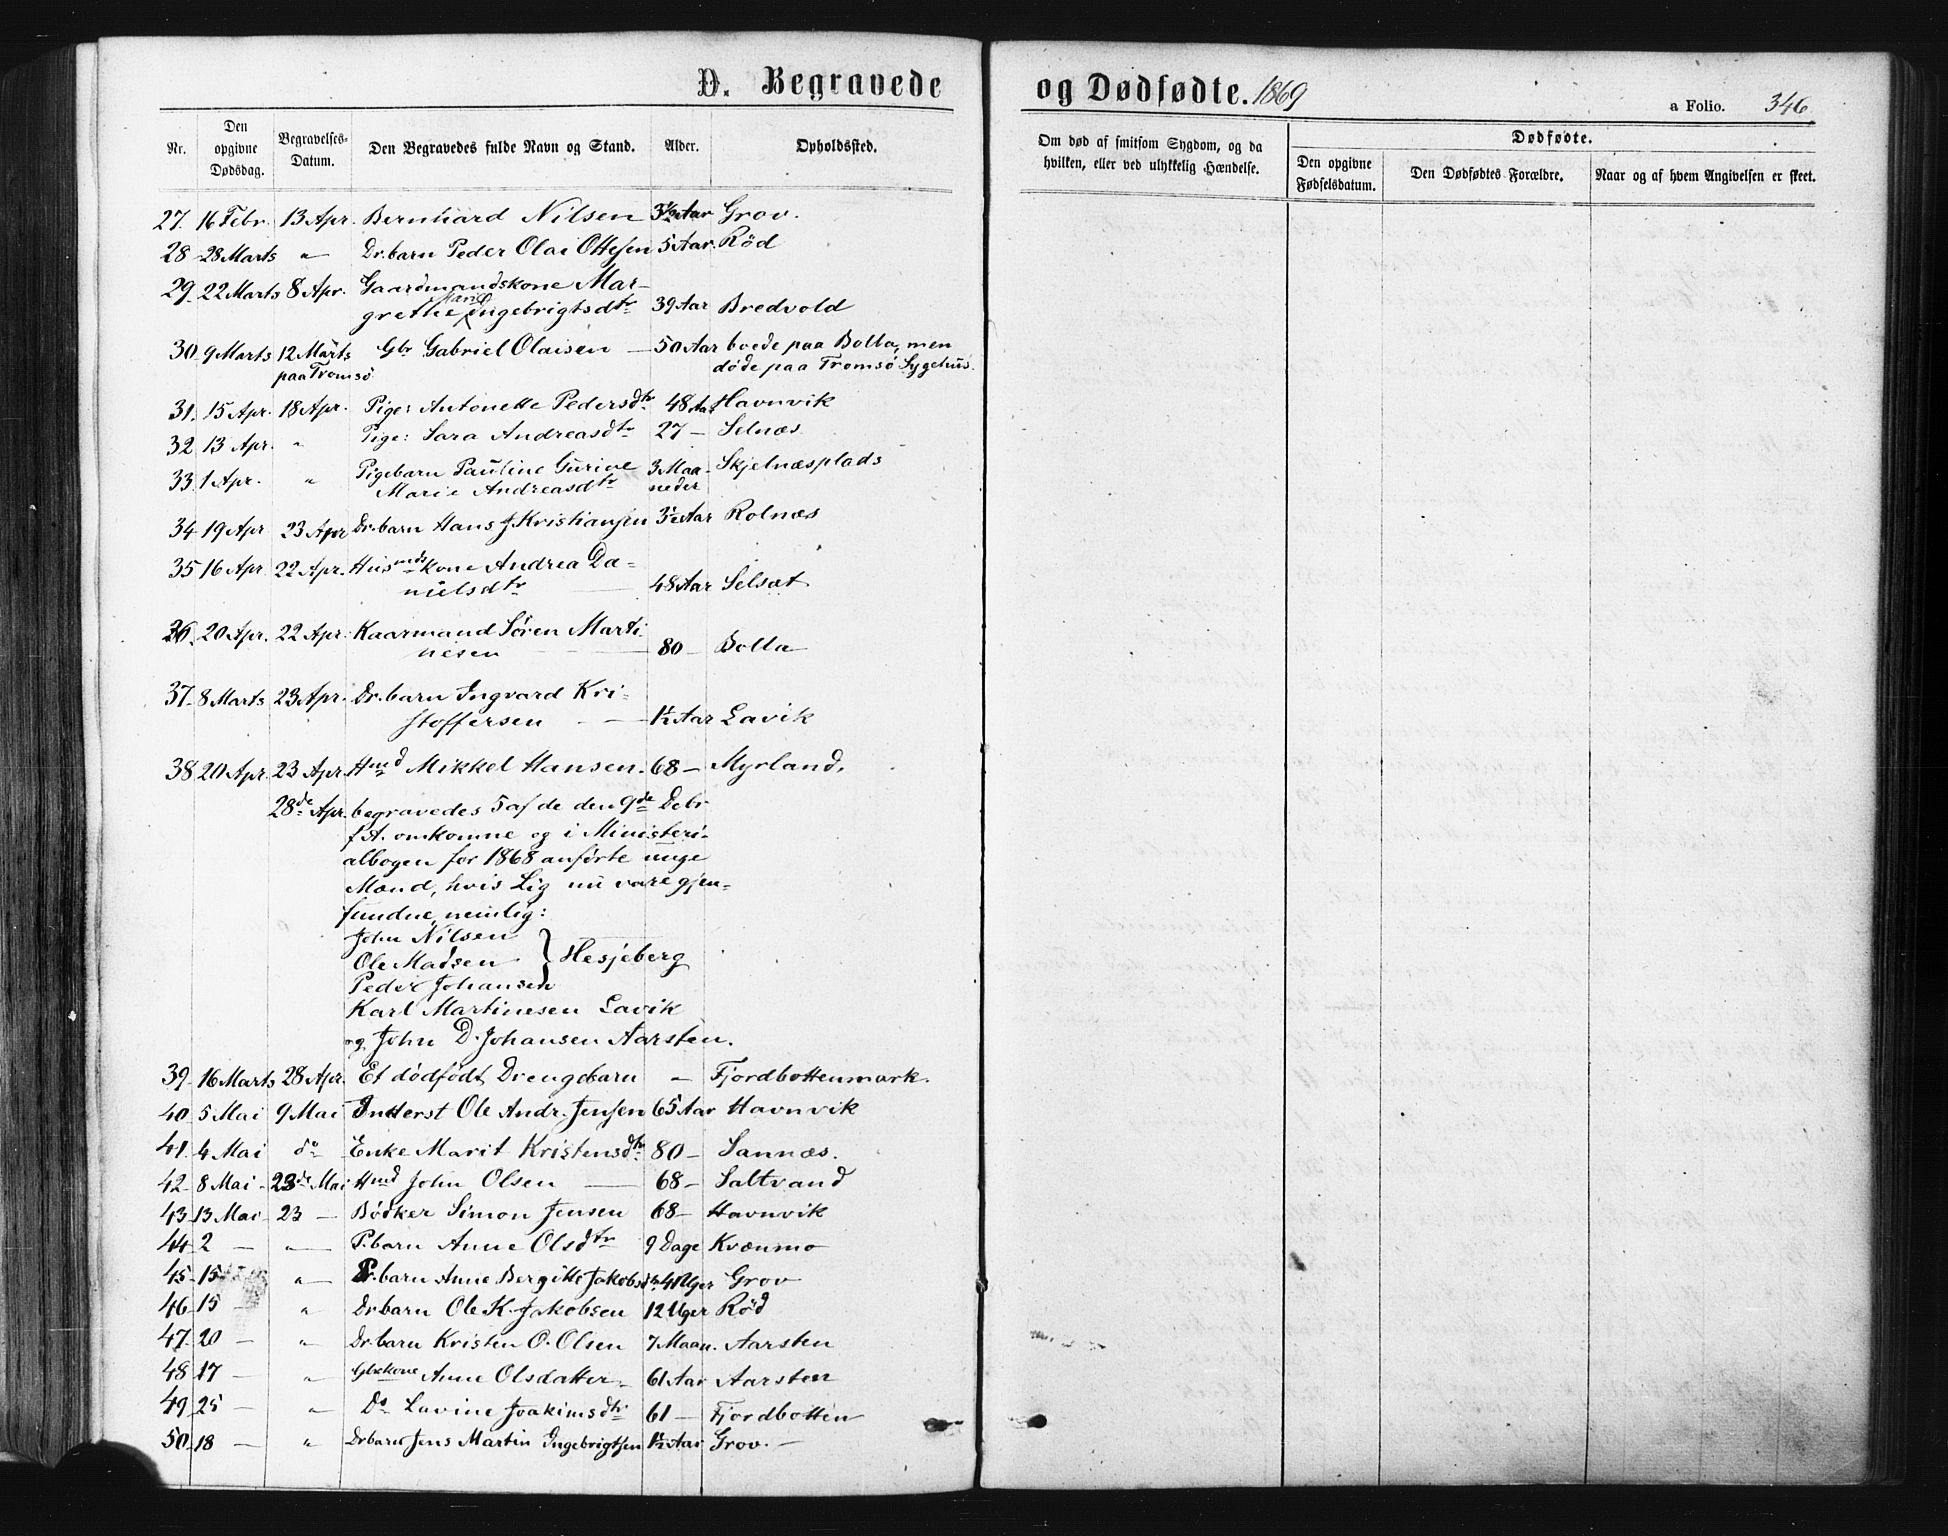 D. Begravede og Dødfødte. 1869
a Folio. 346.
Nr. | Den opgivne Dødsdag. | Begravelses-Datum. | Den Begravedes fulde Navn og Stand. | Alder. | Opholdssted. | Om død af smitsom Sygdom, og da hvilken, eller ved ulykkelig Hændelse. | Dødfødte. | Den opgivne Fødselsdatum. | Den Dødfødtes Forældre. | Naar og af hvem Angivelsen er skeet.
27. 16 Febr. 13 Apr. Bernhard Nilsen 3½ Aar Grov.
28 28 Marts " Dr.barn Peder Olai Ottesen 5 Aar. Röd
29. 22 Marts 8 Apr. Gaardmandskone Mar-
grethe Ingebrigtsdtr 39 Aar Bredvold
30. 9 Marts 12 Marts Gbr Gabriel Olaisen — 50 Aar boede paa Bolla, men
paa Tromsö döde paa Tromsö Sygehus.
31. 15 Apr. 18 Apr. Pige: Antonette Pedersdtr 48 Aar Havnvik
32 13 Apr. " Pige: Sara Andreasdtr 27 — Selnæs
33. 1 Apr. " Pigebarn Pauline Gurine 3 Maa- Skjelnæsplads
Marie Andreasdtr neder
34 19 Apr 23 Apr Dr.barn Hans J Kristiansen 3½ Aar Rolnæs
35 16 Apr 22 Apr. Husmdskone Andrea Da-
nielsdtr 48 Aar Selsæt
36. 20 Apr. 22 Apr. Kaarmand Sören Marti-
nesen — 80 — Bolla
37. 8 Marts 23 Apr. Dr.barn Ingvard Kri-
stoffersen — 1½ Aar Lavik
38. 20 Apr. 23 Apr. Hmd Mikkel Hansen. 68 — Myrland.
28de Apr. begravedes 5 af de den 9de Debr
f.A. omkomne og i Ministeri-
albogen for 1868 anförte unge
Mænd, hvis Lig nu vare gjen-
fundne, nemlig:
John Nilsen
Ole Madsen } Hesjeberg
Peder Johansen
Karl Martinesen Lavik
og John D. Johansen Aarsten.
39. 16 Marts 28 Apr. Et dödfödt Drengebarn — Fjordbottenmark.
40. 5 Mai 9 Mai Inderst Ole Andr. Jensen 65 Aar Havnvik
41. 4 Mai do Enke Marit Kristensdtr 80 — Sannæs.
42. 8 Mai 23de Mai Hmd John Olsen — 68 — Saltvand
43. 13 Mai 23 — Bödker Simon Jensen 68 — Havnvik
44 2 — " — P.barn Anne Olsdtr 9 Dage Kvænmo
45. 15 " — P.barn Anne Bergitte Jakobsdtr 4 Uger Grov
46. 15 — " Dr.barn Ole K. Jakobsen 12 Uger Röd
47. 20 — " Dr.barn Kristen O. Olsen 7 Maan. Aarsten
48 17 — " Gbrkone Anne Olsdatter 61 Aar Aarsten
49. 25 — " Do Lavine Joakimsdtr 61 — Fjordbotten
50. 18 — " Dr.barn Jens Martin Ingebrigtsen 1½ Aar Grov. —